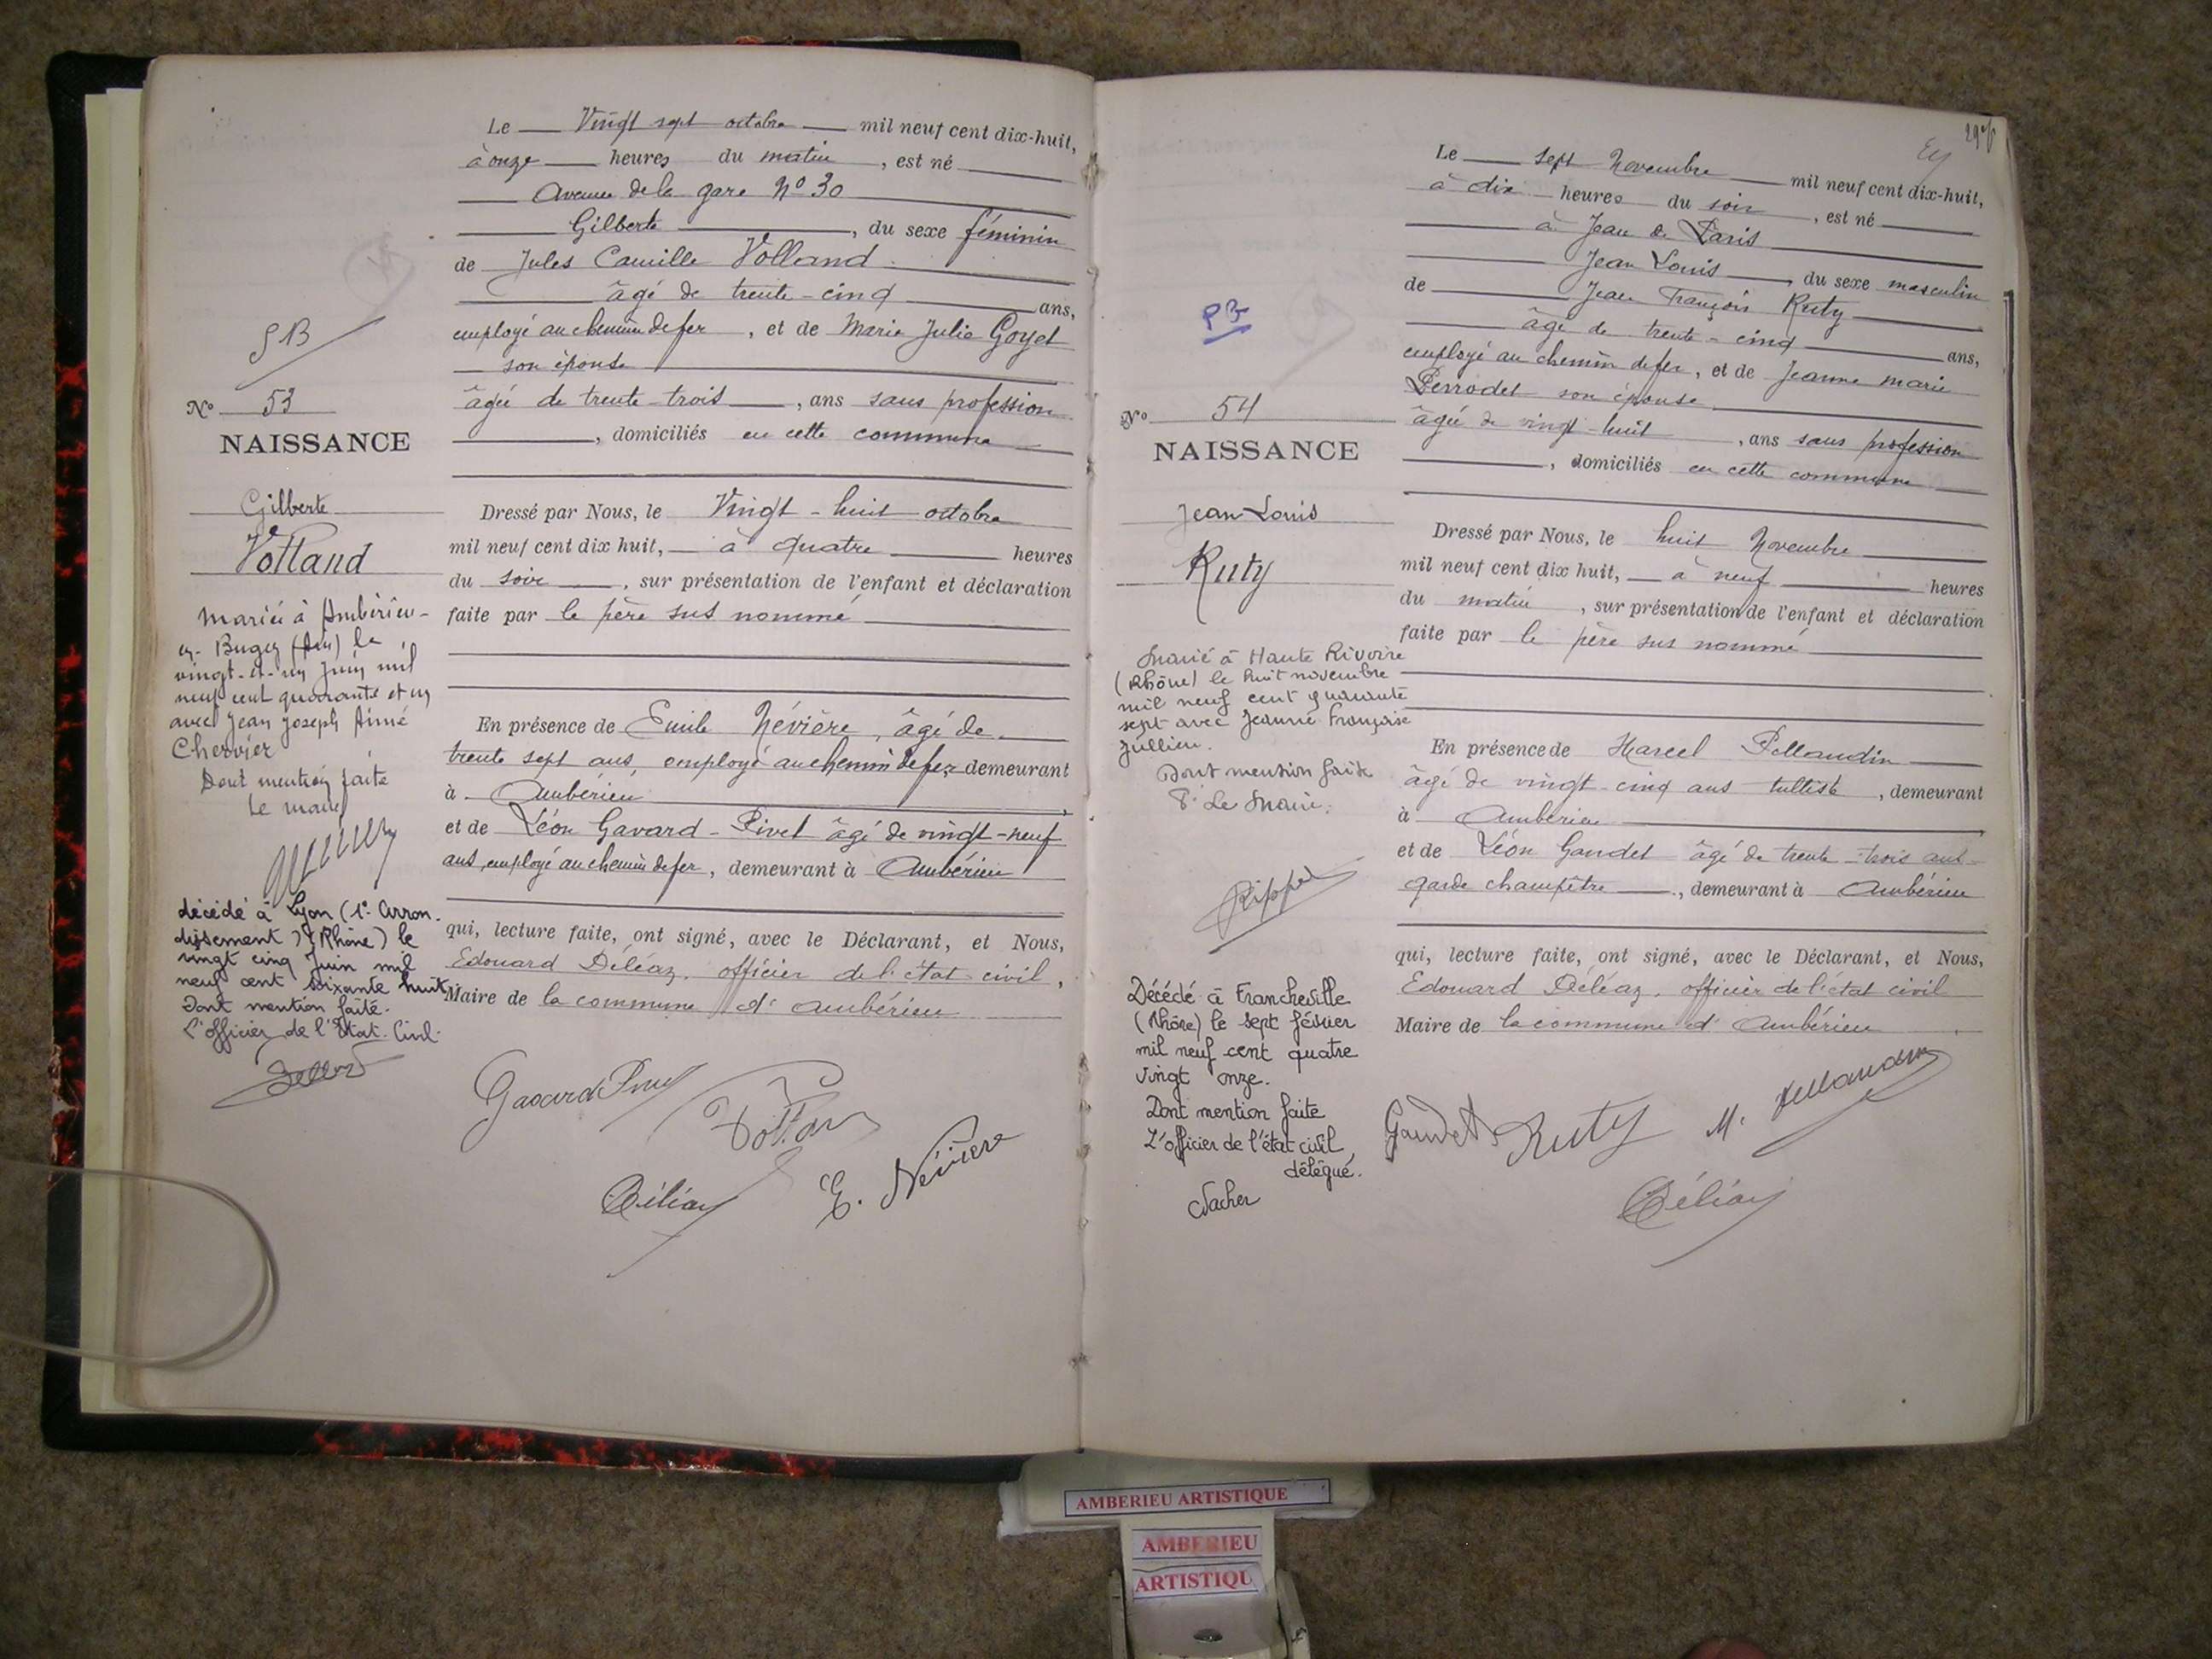 Le Vingt sept octobre mil neuf cent dix-huit,
à onze heures du matin, est né
Avenue de la gare N° 30
Gilberte, du sexe féminin
de Jules Camille Volland
âgé de trente-cinq ans,
employé au chemin de fer, et de Marie Julie Goyet
son épouse
âgée de trente-trois, ans sans profession
, domiciliés en cette commune
Dressé par Nous, le Vingt-huit octobre
mil neuf cent dix huit, à quatre heures
du soir, sur présentation de l'enfant et déclaration
faite par le père sus nommé
En présence de Emile Névière, âgé de
trente sept ans, employé au chemin de fer demeurant
à Ambérieu,
et de Léon Gavard-Pivet âgé de vingt-neuf
ans, employé au chemin de fer, demeurant à Ambérieu
qui, lecture faite, ont signé, avec le Déclarant, et Nous,
Edouard Déléaz, officier de l'état civil,
Maire de la commune d'Ambérieu
Déléaz
E. Névière
N° 53
NAISSANCE
Gilberte
Volland
Mariée à Ambérieu-
en-Bugey (Ain) le
vingt-et-un juin mil
neuf cent quarante et un
avec Jean Joseph Aimé
Chervier
Dont mention faite
Le maire
décédé à Lyon (1e Arron-
dissement) (Rhône) le
vingt cinq Juin mil
neuf cent soixante huit.
Dont mention faite.
L'officier de l'Etat-Civil.
Le sept Novembre mil neuf cent dix-huit,
à dix heures du soir, est né
à Jean de Paris
Jean Louis, du sexe masculin
de Jean François Ruty
âgé de trente-cinq ans,
employé au chemin de fer, et de Jeanne Marie
Perrodet son épouse
âgée de vingt-huit, ans sans profession
, domiciliés en cette commune
Dressé par Nous, le huit Novembre
mil neuf cent dix huit, à neuf heures
du matin, sur présentation de l'enfant et déclaration
faite par le père sus nommé
En présence de Marcel Pellaudin
âgé de vingt-cinq ans tulliste, demeurant
à Ambérieu,
et de Léon Gaudet âgé de trente-trois ans
garde champêtre, demeurant à Ambérieu
qui, lecture faite, ont signé, avec le Déclarant, et Nous,
Edouard Déléaz, officier de l'état civil
Maire de la commune d'Ambérieu
Gaudet Ruty M. Pellaudin
Déléaz
N° 54
NAISSANCE
Jean Louis
Ruty
Marié à Haute Rivoire
(Rhône) le huit novembre
mil neuf cent quarante
sept avec Jeanne Françoise
Jullien.
Dont mention faite
Pr Le Maire.
Décédé à Francheville
(Rhône) le sept février
mil neuf cent quatre
vingt onze.
Dont mention faite
L'officier de l'état civil
délégué.
AMBERIEU ARTISTIQUE
AMBERIEU
ARTISTIQU